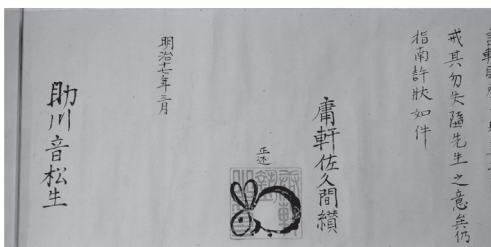 戒其勿失隨先生之意矣仍
指南許狀如件
庸軒佐久間纉
正述
明治十七年三月
助川音松生